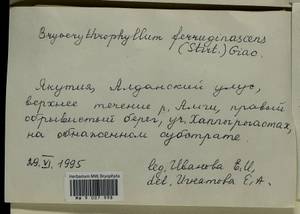 Bryoerythrophyllum ferruginascens
(Stirt.) Giac.
Якутия, Алданский улус,
верхнее течение р. Амги, правый
обрывистый берег, ур.
на обнаженном субстрате.
29.VI. 1995
leg. Иванова Е.И.
det. Игнатова Е.А.
Herbarium MW, Bryophyta